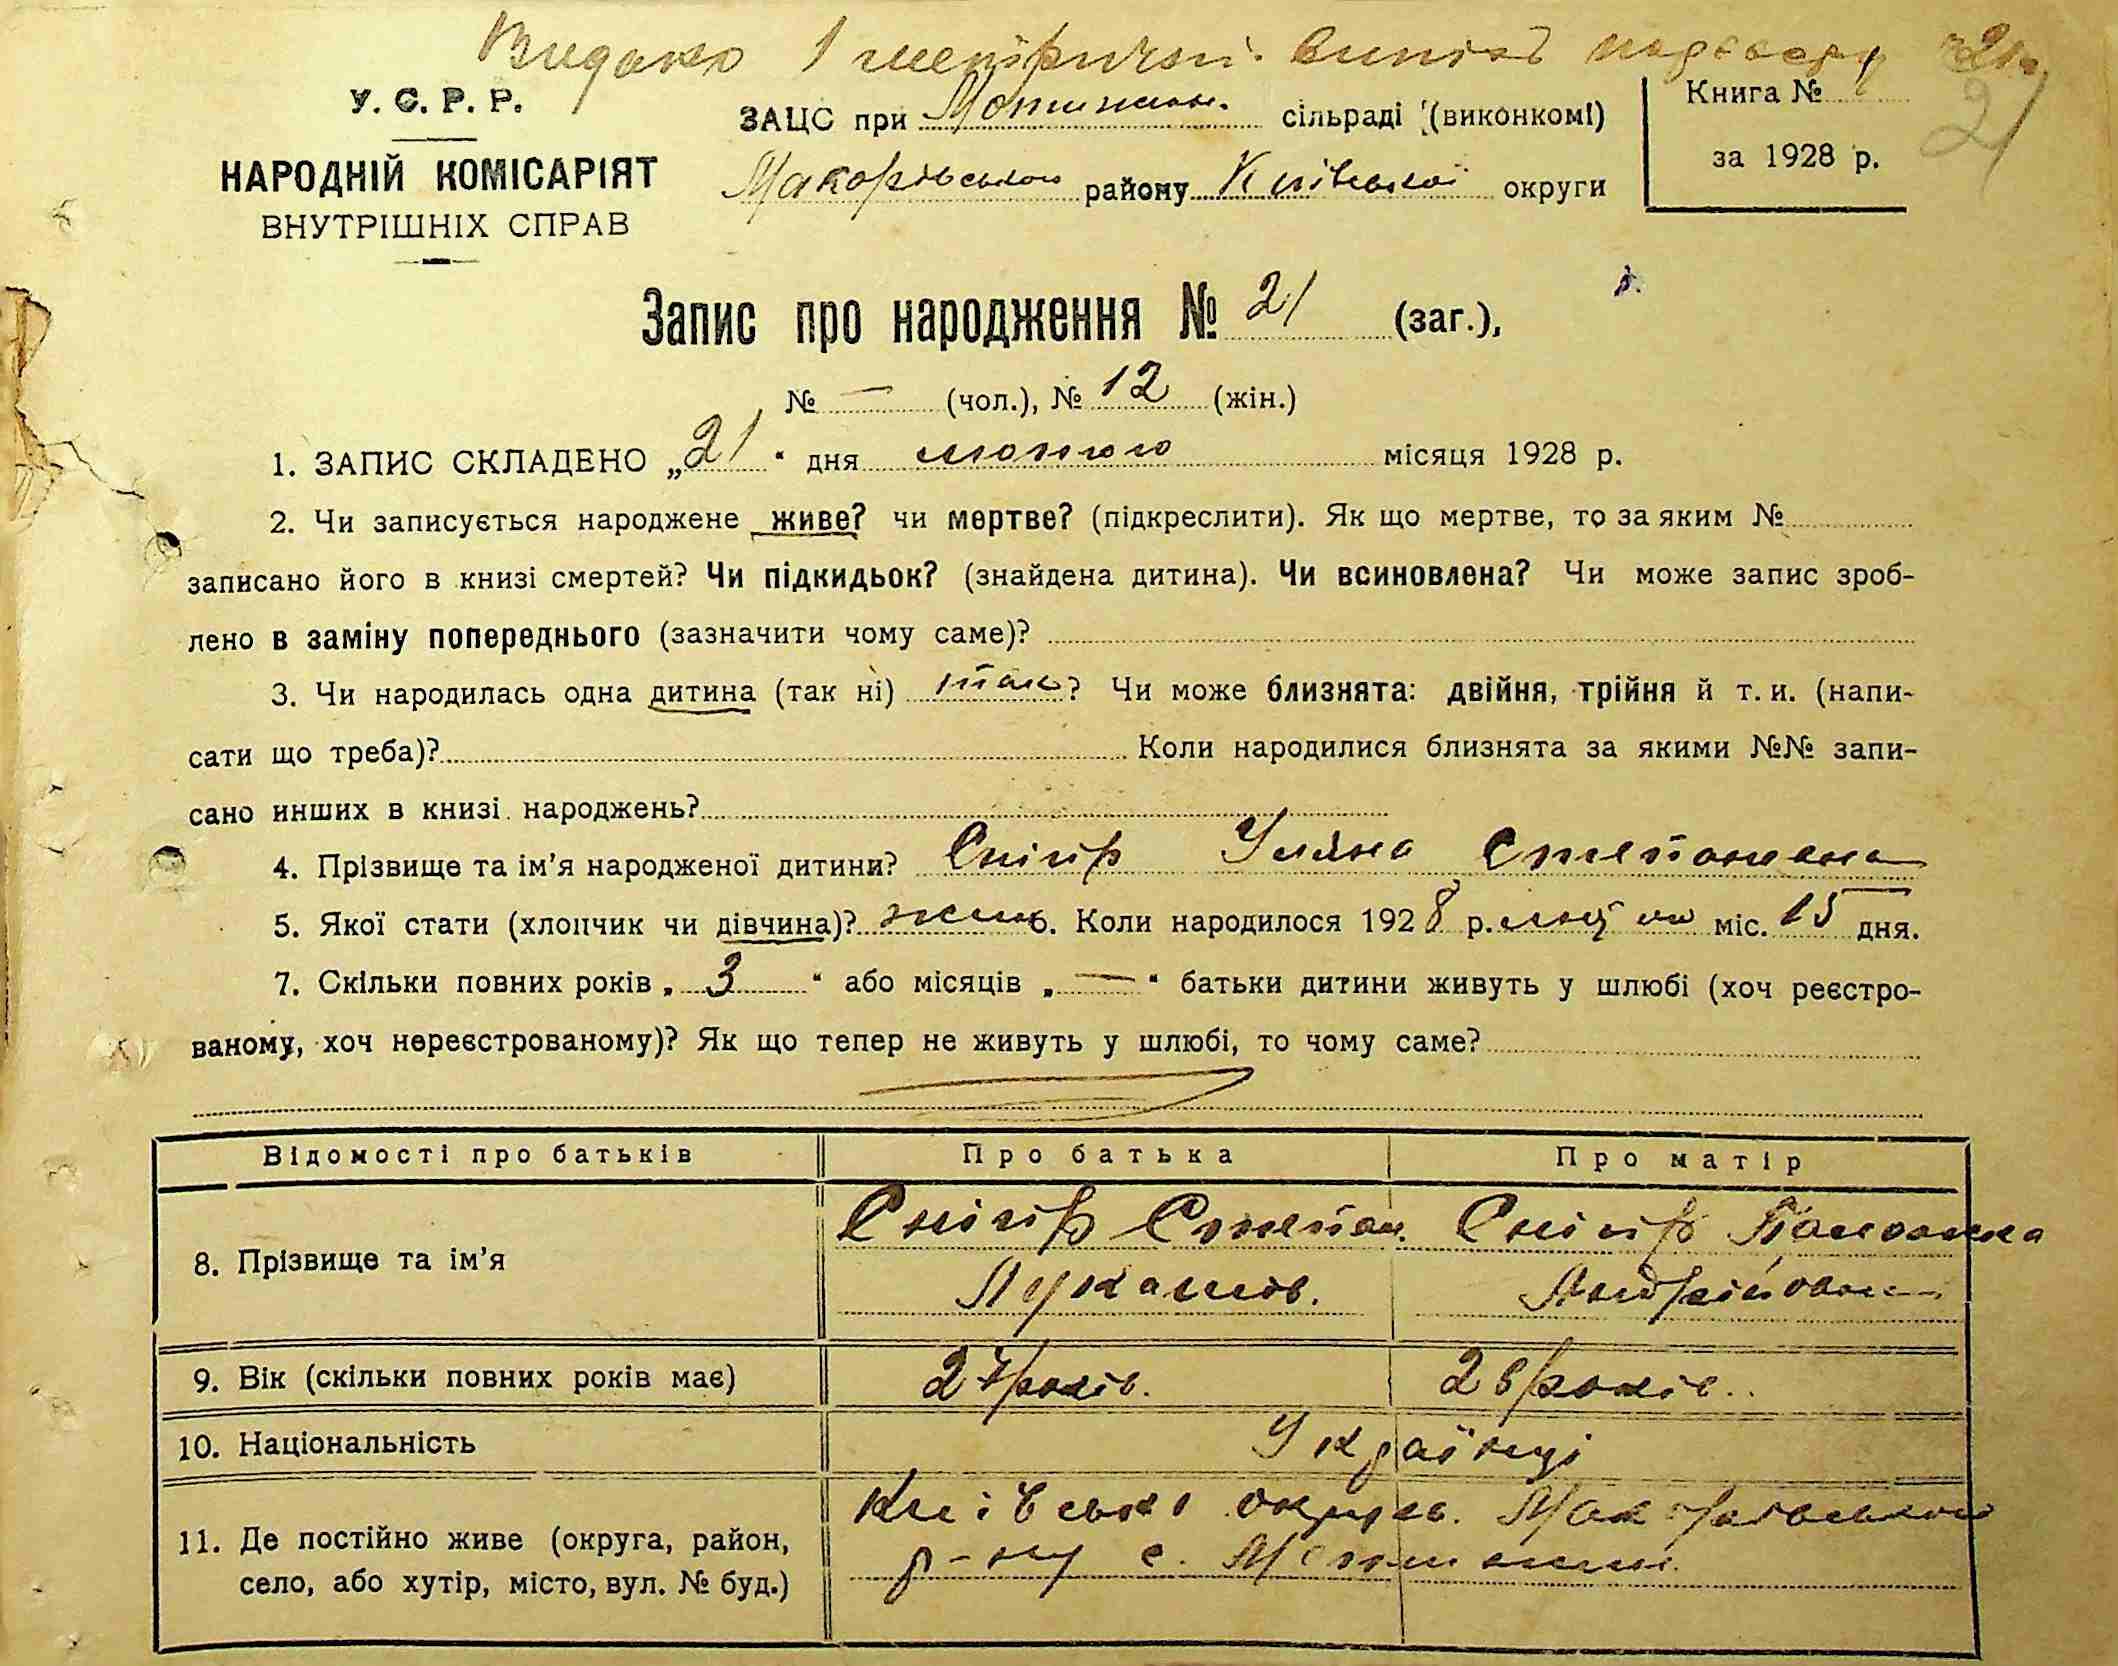 Видано 1 метричний випис
У. С. Р. Р.
НАРОДНІЙ КОМІСАРІЯТ
ВНУТРІШНІХ СПРАВ
ЗАЦС при Мотижин. сільраді (виконкомі)
Макарівського району Київської округи
Книга №
за 1928 р.
21
Запис про народження № 21 (заг.),
№ — (чол.), № 12 (жін.)
1. ЗАПИС СКЛАДЕНО „21“ дня лютого місяця 1928 р.
2. Чи записується народжене живе? чи мертве? (підкреслити). Як що мертве, то за яким №
записано його в книзі смертей? Чи підкидьок? (знайдена дитина). Чи всиновлена? Чи може запис зроб-
лено в заміну попереднього (зазначити чому саме)?
3. Чи народилась одна дитина (так ні) так? Чи може близнята: двійня, трійня й т. и. (напи-
сати що треба)? Коли народилися близнята за якими №№ запи-
сано инших в книзі народжень?
4. Прізвище та ім’я народженої дитини? Снігир Уляна Степановна
5. Якої стати (хлопчик чи дівчина)? 6. Коли народилося 1928 р. міс. 15 дня.
7. Скільки повних років „3“ або місяців „—“ батьки дитини живуть у шлюбі (хоч реєстро-
ваному, хоч нереєстрованому)? Як що тепер не живуть у шлюбі, то чому саме?
Відомості про батьків Про батька Про матір
8. Прізвище та ім’я Снігир Степан Лукашов. Снігир Паложка Андрійовн
9. Вік (скільки повних років має) 27 років. 28 років.
10. Національність Українці
11. Де постійно живе (округа, район, село, або хутір, місто, вул. № буд.) Київської округи. Макарівського р-ну с. Мотижин